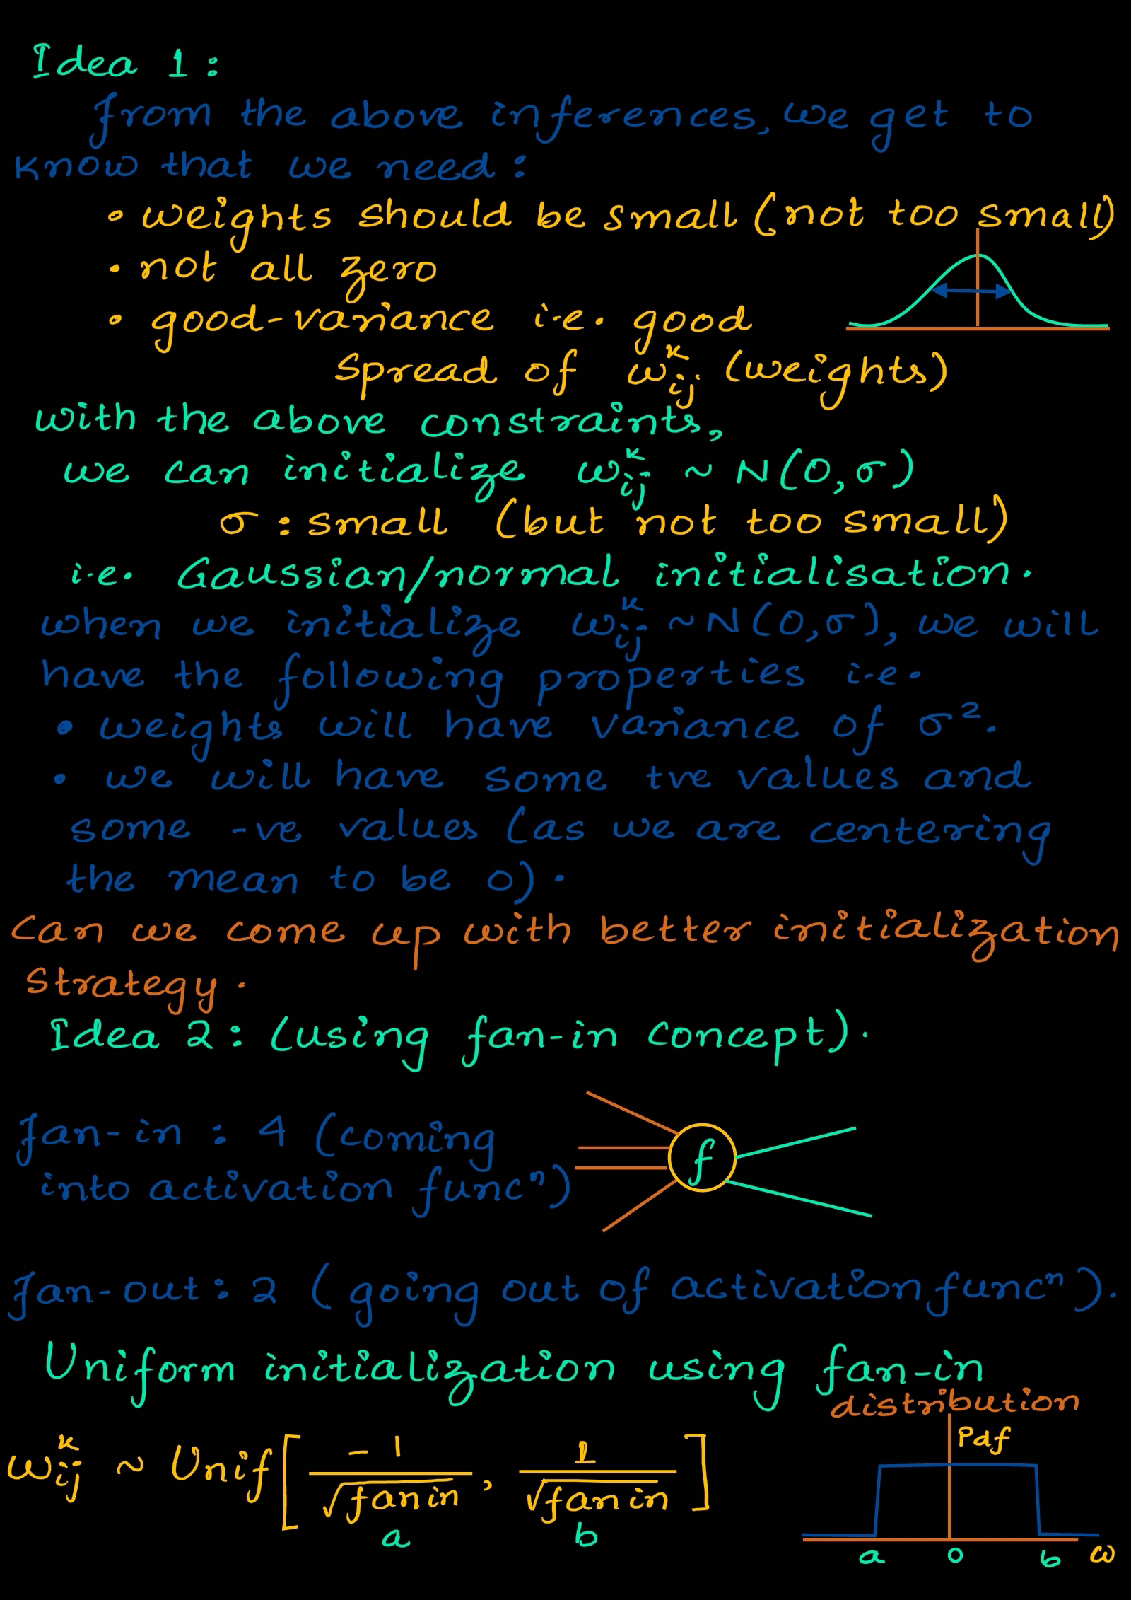 Idea 1:
From the above inferences, we get to
know that we need:
• weights should be small (not too small)
• not all zero
• good-variance i.e. good
spread of w^k_ij (weights)
with the above constraints,
we can initialize w^k_ij ~ N(0,σ)
σ : small (but not too small)
i.e. Gaussian/normal initialisation.
when we initialize w^k_ij ~ N(0,σ), we will
have the following properties i.e.
• weights will have variance of σ².
• we will have some +ve values and
some -ve values (as we are centering
the mean to be 0).
Can we come up with better initialization
strategy.
Idea 2: (using fan-in concept).
Fan-in : 4 (coming
into activation funcⁿ)
f
Fan-out: 2 (going out of activation funcⁿ).
Uniform initialization using fan-in
distribution
w^k_ij ~ Unif[-1/√fan in, 1/√fan in]
a b
Pdf
a 0 b w